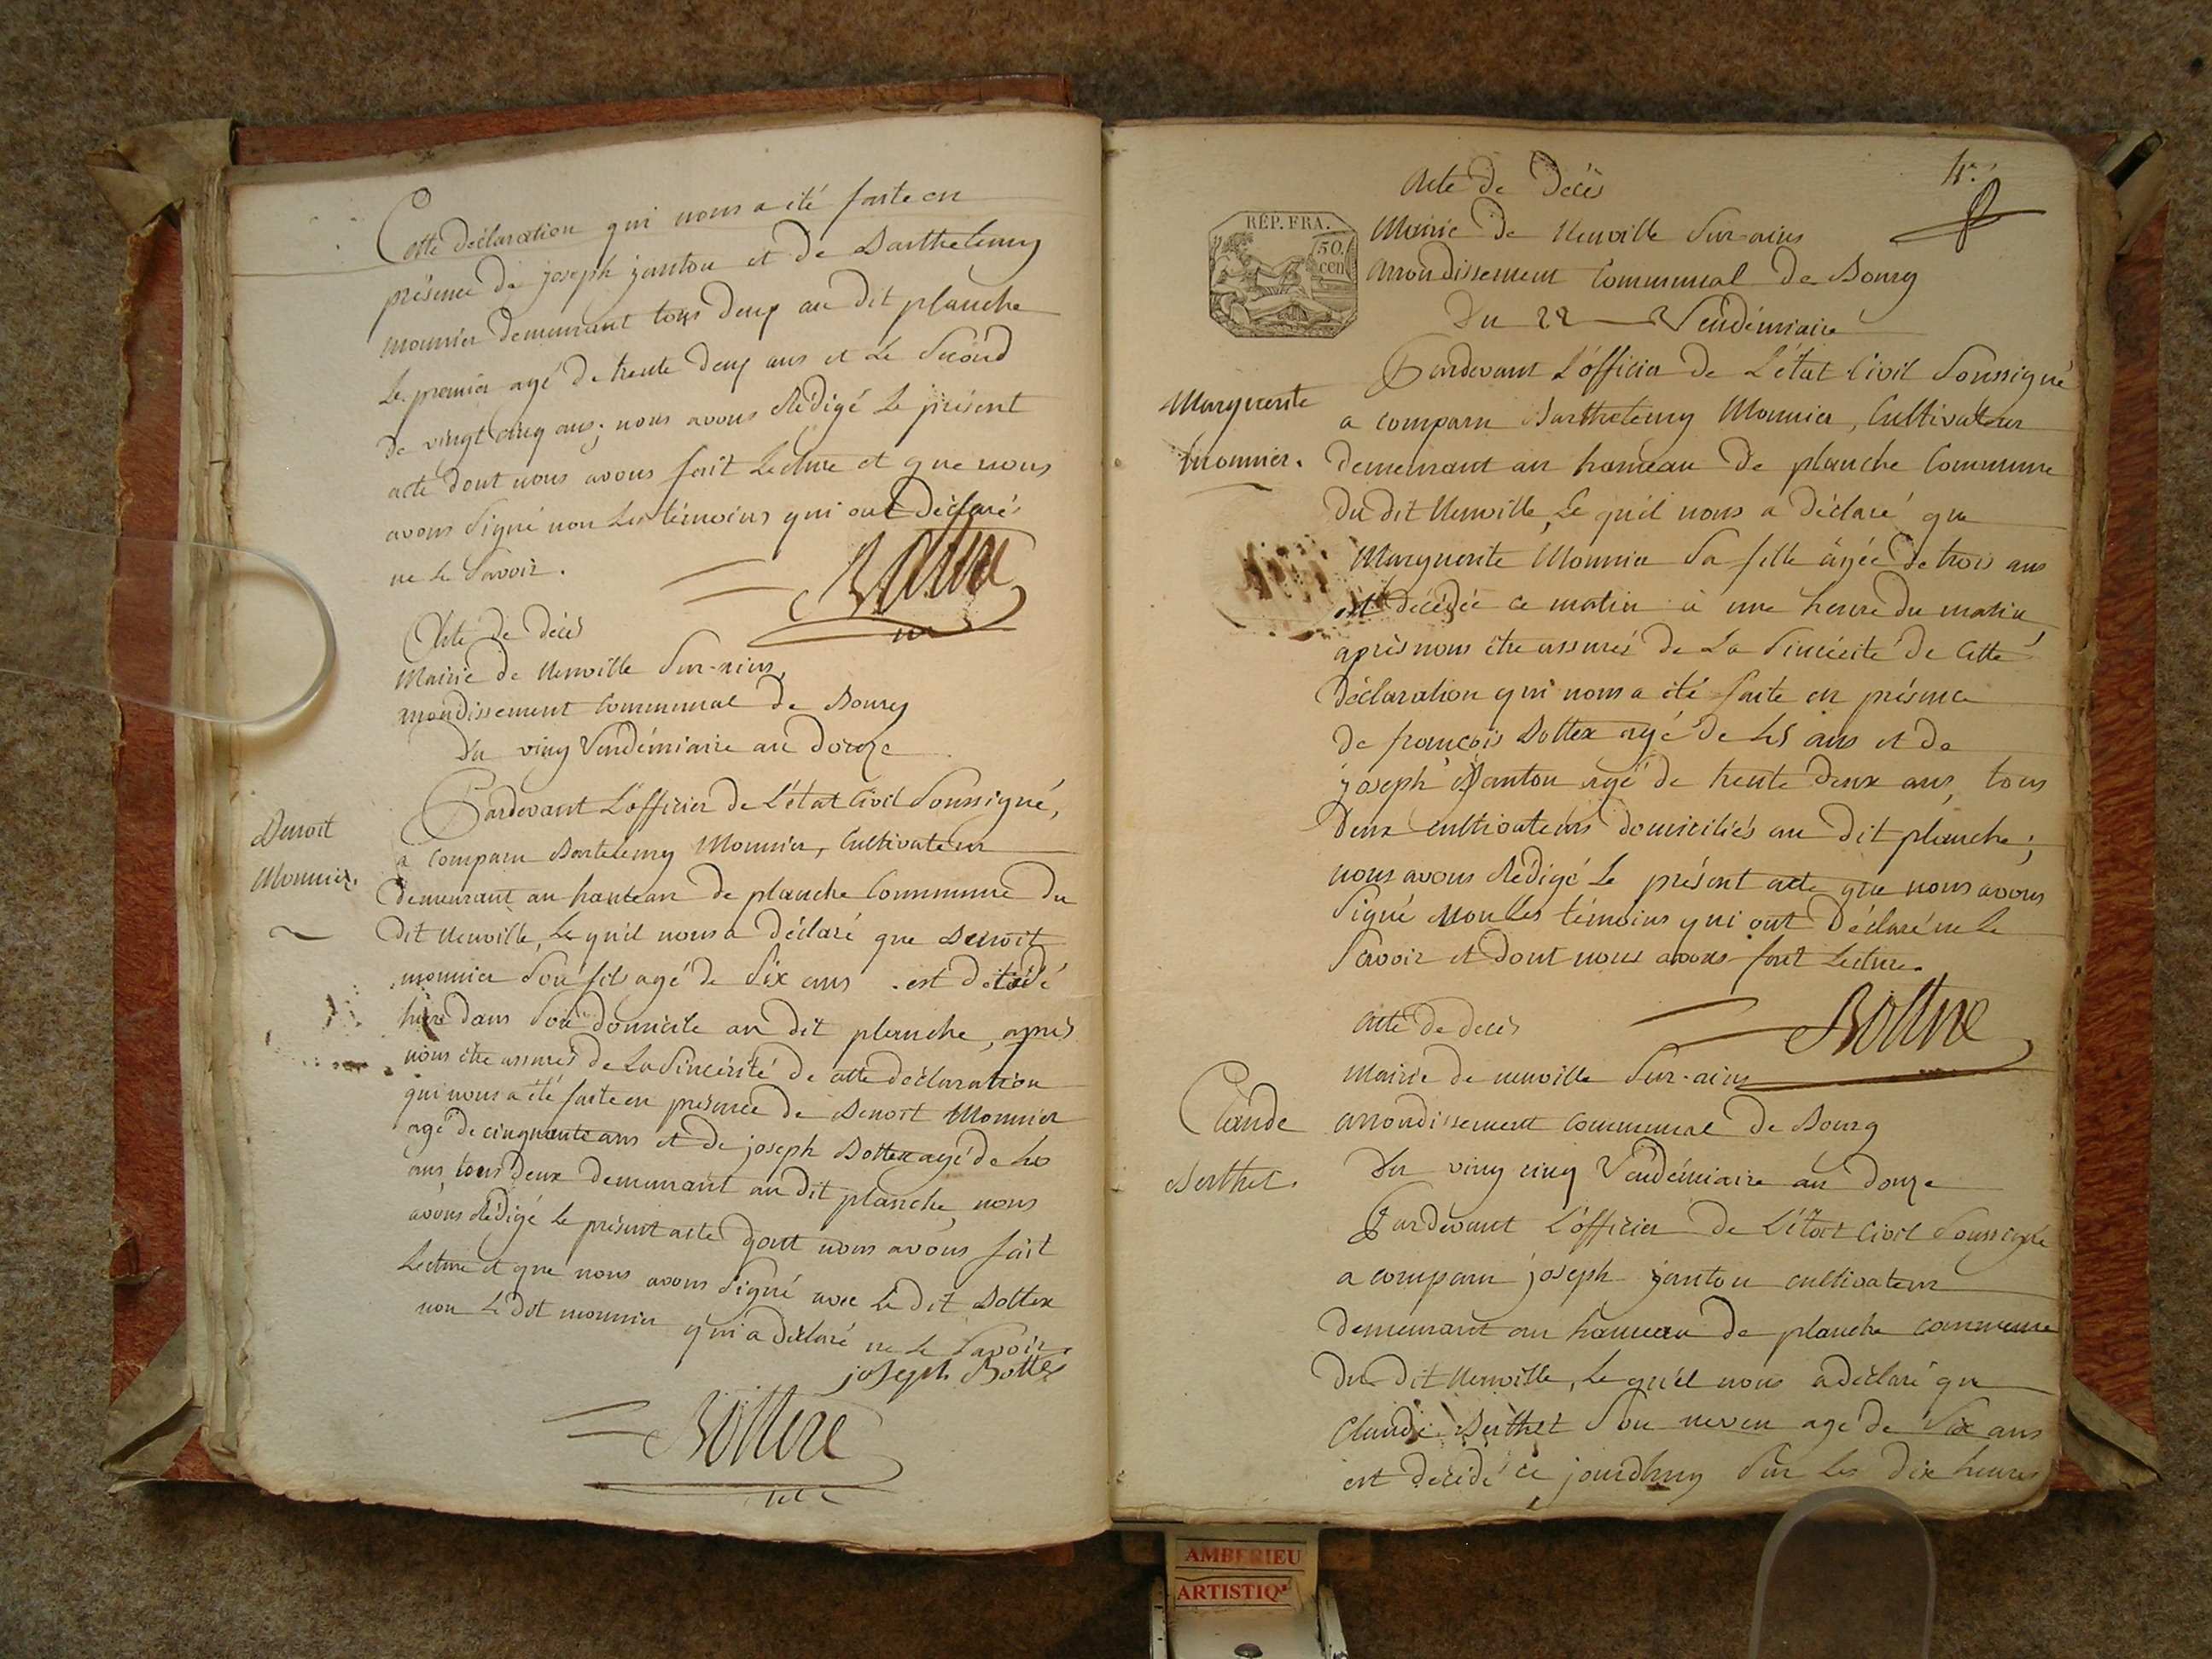 Cette déclaration qui nous a été faite en
présence de joseph janton et de Barthelemy
monnier demeurant tous deux au dit planche
Le premier agé de trente deux ans et le Second
de vingt cinq ans; nous avons Rédigé le présent
acte dont nous avons fait Lecture et que nous
avons Signé non Les témoins qui ont déclaré
ne le Savoir.
Acte de décès
Mairie de Neuville Sur-ains,
arrondissement Communal de Bourg
Du ving Vendémiaire an douze
Benoit
Monnier.
Pardevant L'officier de L'état Civil Soussigné,
a comparu Bartelemy Monnier, Cultivateur
demeurant au hameau de planche Commune du
dit Neuville, Le quel nous a déclaré que Benoit
monnier Son fils agé de Six ans est décédé
hier dans Son domicile au dit planche, après
nous être assurés de La Sincérité de cette déclaration
qui nous a été faite en présence de Benoit Monnier
agé de cinquante ans et de joseph Bottex agé de
ans, tous deux demeurant au dit planche, nous
avons Rédigé le présent acte dont nous avons fait
Lecture et que nous avons Signé avec Le dit Bottex
non Le dit monnier qui a déclaré ne le Savoir.
joseph Bottex
Acte de Décès
4.
RÉP. FRA.
50.
cen
Mairie de Neuville Sur-ains
arrondissement Communal de Bourg
Du 22 Vendémiaire
Marguerite
monnier.
Pardevant L'officier de L'état Civil Soussigné
a comparu Barthelemy Monnier, Cultivateur
demeurant au hameau de planche Commune
du dit Neuville, Le quel nous a déclaré que
Marguerite Monnier Sa fille âgée de trois ans
est décédée ce matin à une heure du matin,
après nous être assurés de La Sincérité de Cette
déclaration qui nous a été faite en présence
de françois Bottex agé de 45 ans et de
joseph Janton agé de trente deux ans, tous
deux cultivateurs domiciliés au dit planche;
nous avons Rédigé Le présent acte que nous avons
Signé Non Les témoins qui ont déclaré ne le
Savoir et dont nous avons fait Lecture.
acte de décès
Mairie de neuville Sur-ains
Claude
Berthet.
arrondissement communal de Bourg
Du ving cinq Vendémiaire an douze
Pardevant L'officier de L'état Civil Soussigné
a comparu joseph janton cultivateur
demeurant au hameau de planche commune
du dit Neuville, Le quel nous a déclaré que
Claude Berthet Son neveu agé de Six ans
est décédé ce jourdhuy Sur les dix heures
AMBERIEU
ARTISTIQ